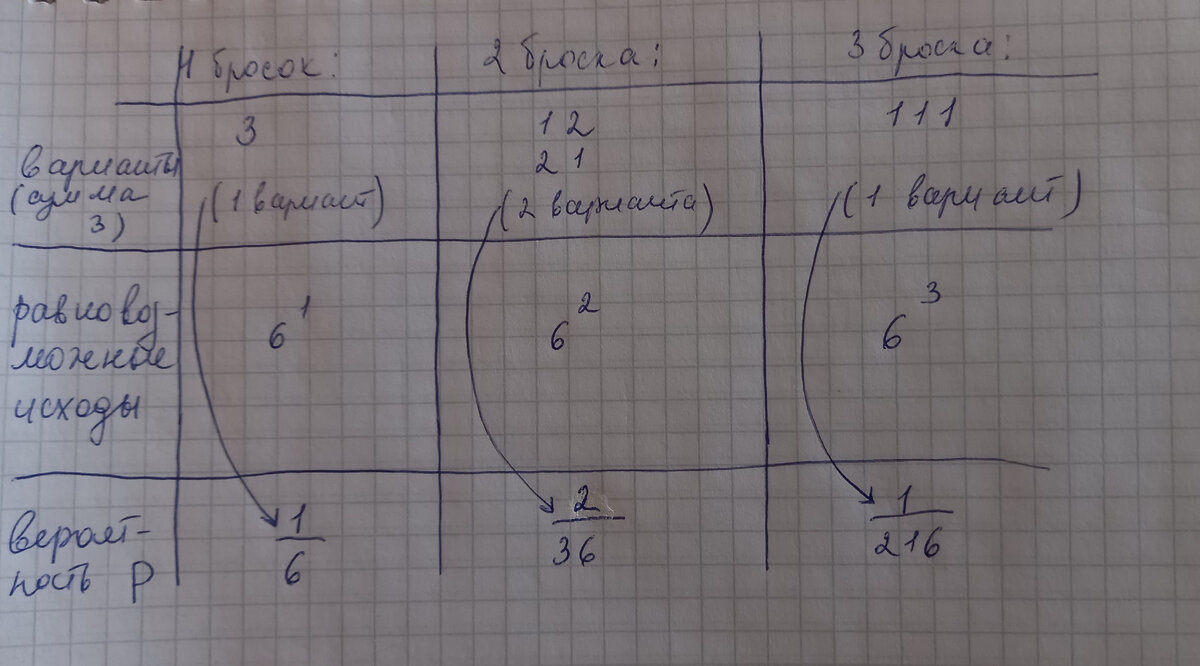 1 бросок:
2 броска:
3 броска:
варианты
(сумма
3)
3
(1 вариант)
1 2
2 1
(2 варианта)
1 1 1
(1 вариант)
равновоз-
можные
исходы
6^1
6^2
6^3
вероят-
ность P
1/6
2/36
1/216